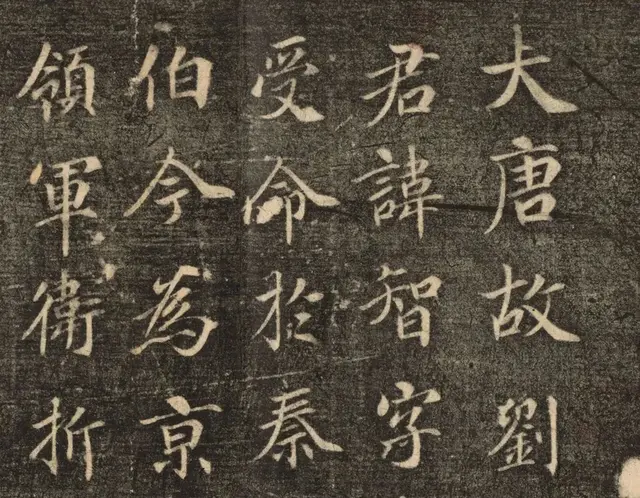 大唐故劉
君諱智字
受命於秦
伯今為京
領軍衛折